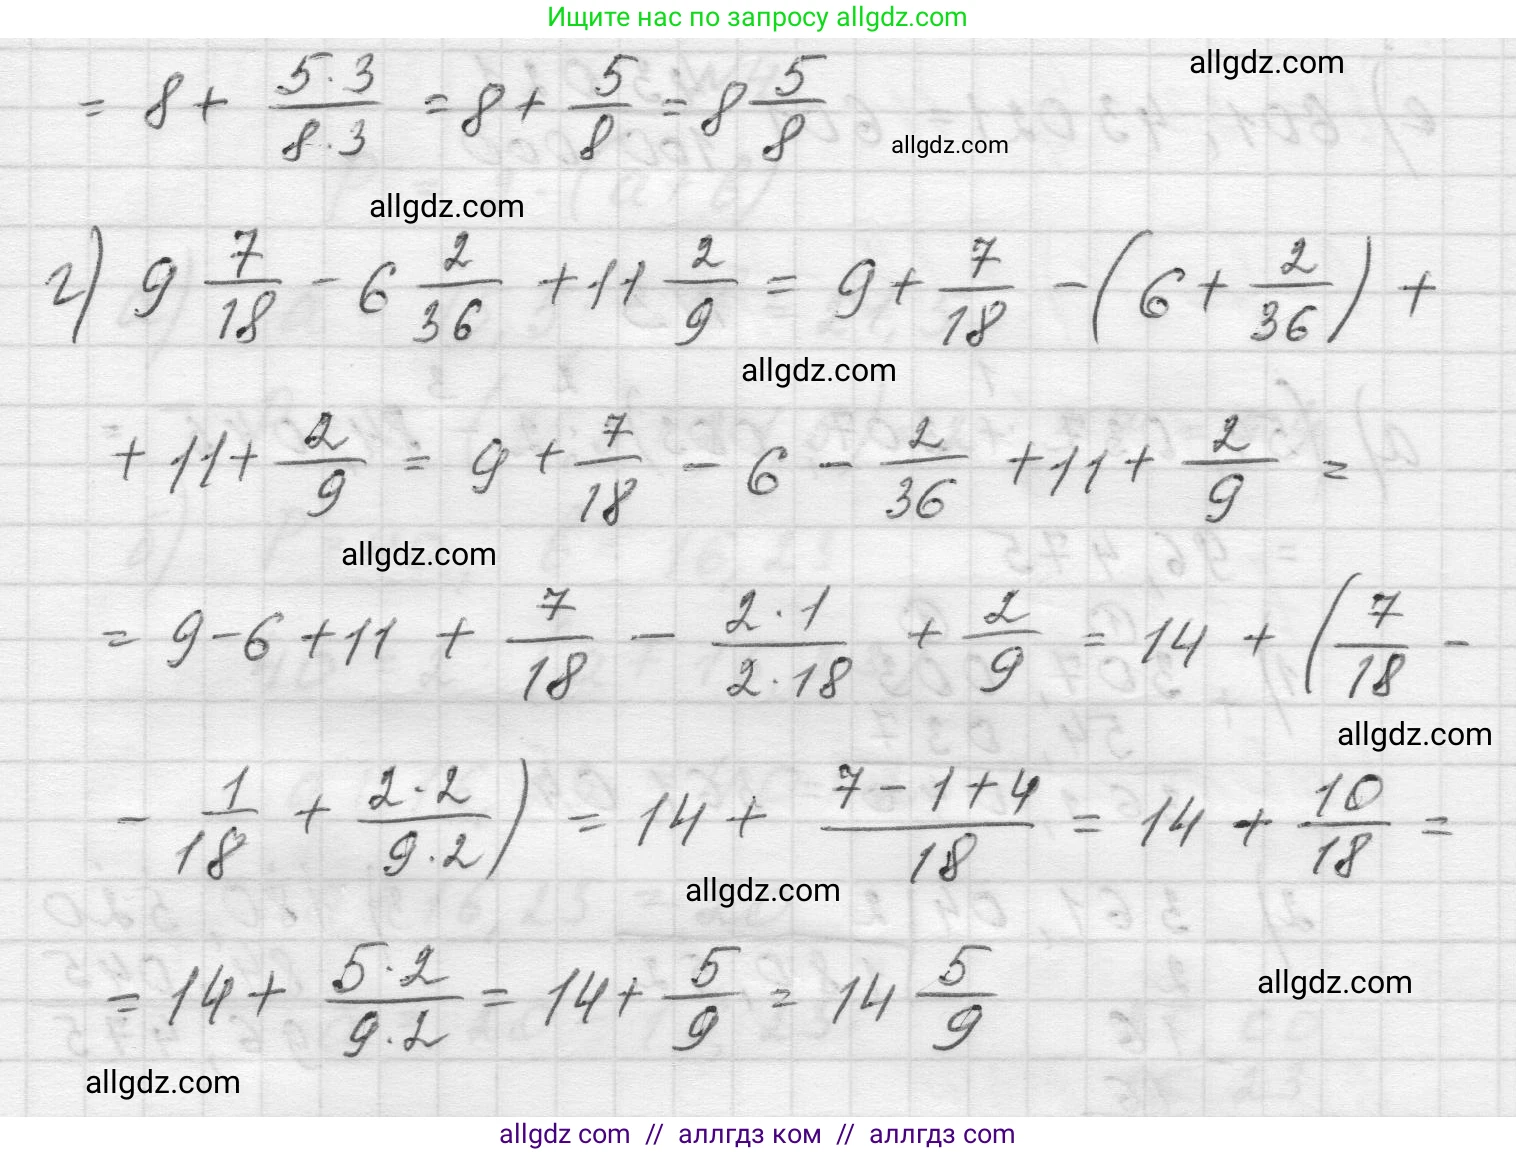 Ищите нас по запросу allgdz.com
= 8 + 5·3/8·3 = 8 + 5/8 = 8 5/8
allgdz.com
allgdz.com
allgdz.com
г) 9 7/18 - 6 2/36 + 11 2/9 = 9 + 7/18 - (6 + 2/36) +
allgdz.com
+ 11 + 2/9 = 9 + 7/18 - 6 - 2/36 + 11 + 2/9 =
allgdz.com
= 9 - 6 + 11 + 7/18 - 2·1/2·18 + 2/9 = 14 + (7/18 -
allgdz.com
- 1/18 + 2·2/9·2) = 14 + 7-1+4/18 = 14 + 10/18 =
allgdz.com
= 14 + 5·2/9·2 = 14 + 5/9 = 14 5/9
allgdz.com
allgdz.com
allgdz com // аллгдз ком // аллгдз com